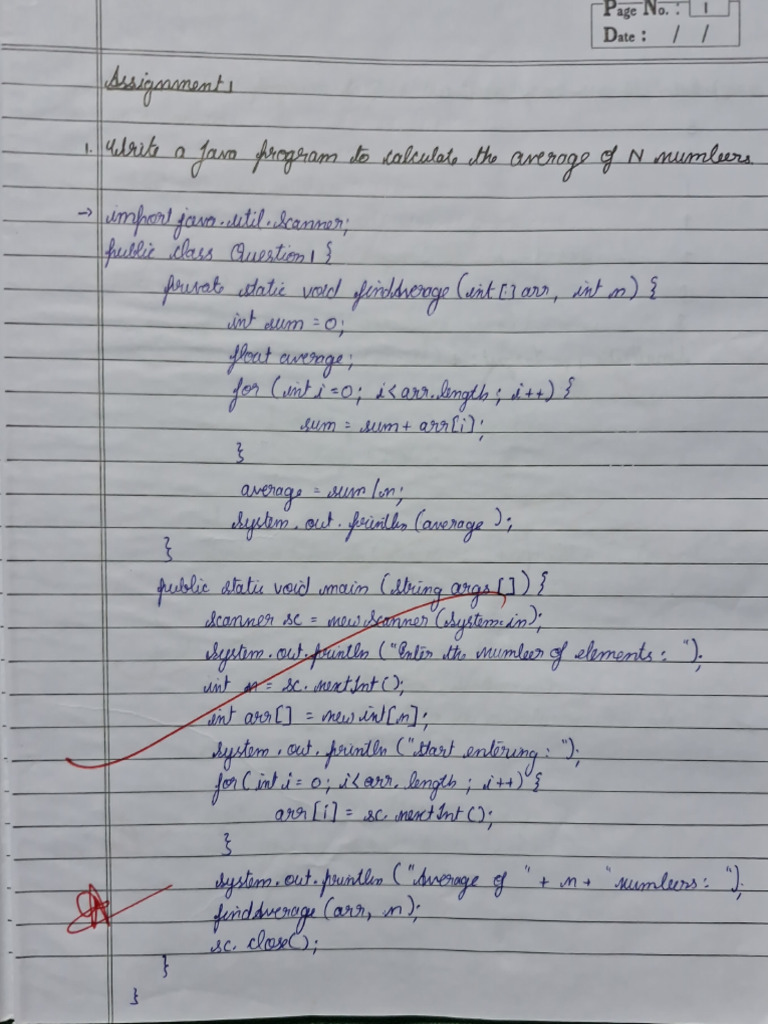 Page No.: 1
Date: / /
Assignment 1
1. Write a Java program to calculate the average of N numbers.
→ import java.util.Scanner;
public class Question1 {
private static void findAverage (int[] arr, int n) {
int sum = 0;
float average;
for (int i=0; i<arr.length; i++) {
sum = sum + arr[i];
}
average = sum/n;
System.out.println(average);
}
public static void main (String args[]) {
Scanner sc = new Scanner (System.in);
System.out.println ("Enter the number of elements: ");
int n = sc.nextInt();
int arr[] = new int[n];
System.out.println ("Start entering: ");
for (int i = 0; i<arr.length; i++) {
arr[i] = sc.nextInt();
}
System.out.println ("Average of " + n + " numbers: ");
findAverage (arr, n);
sc.close();
}
}